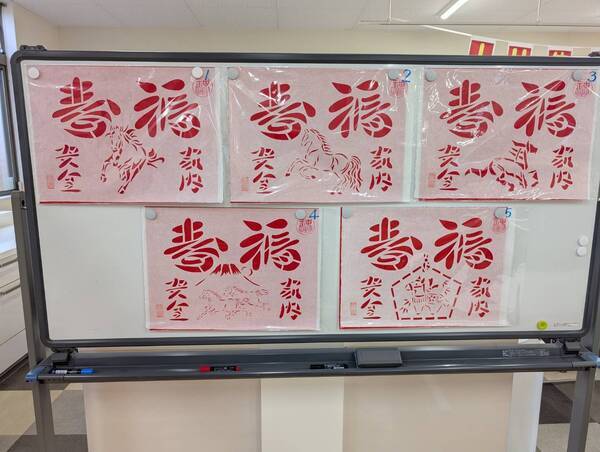 1
福寿
家内
安全
2
福寿
家内
安全
3
福寿
家内
安全
4
福寿
家内
安全
5
福寿
家内
安全